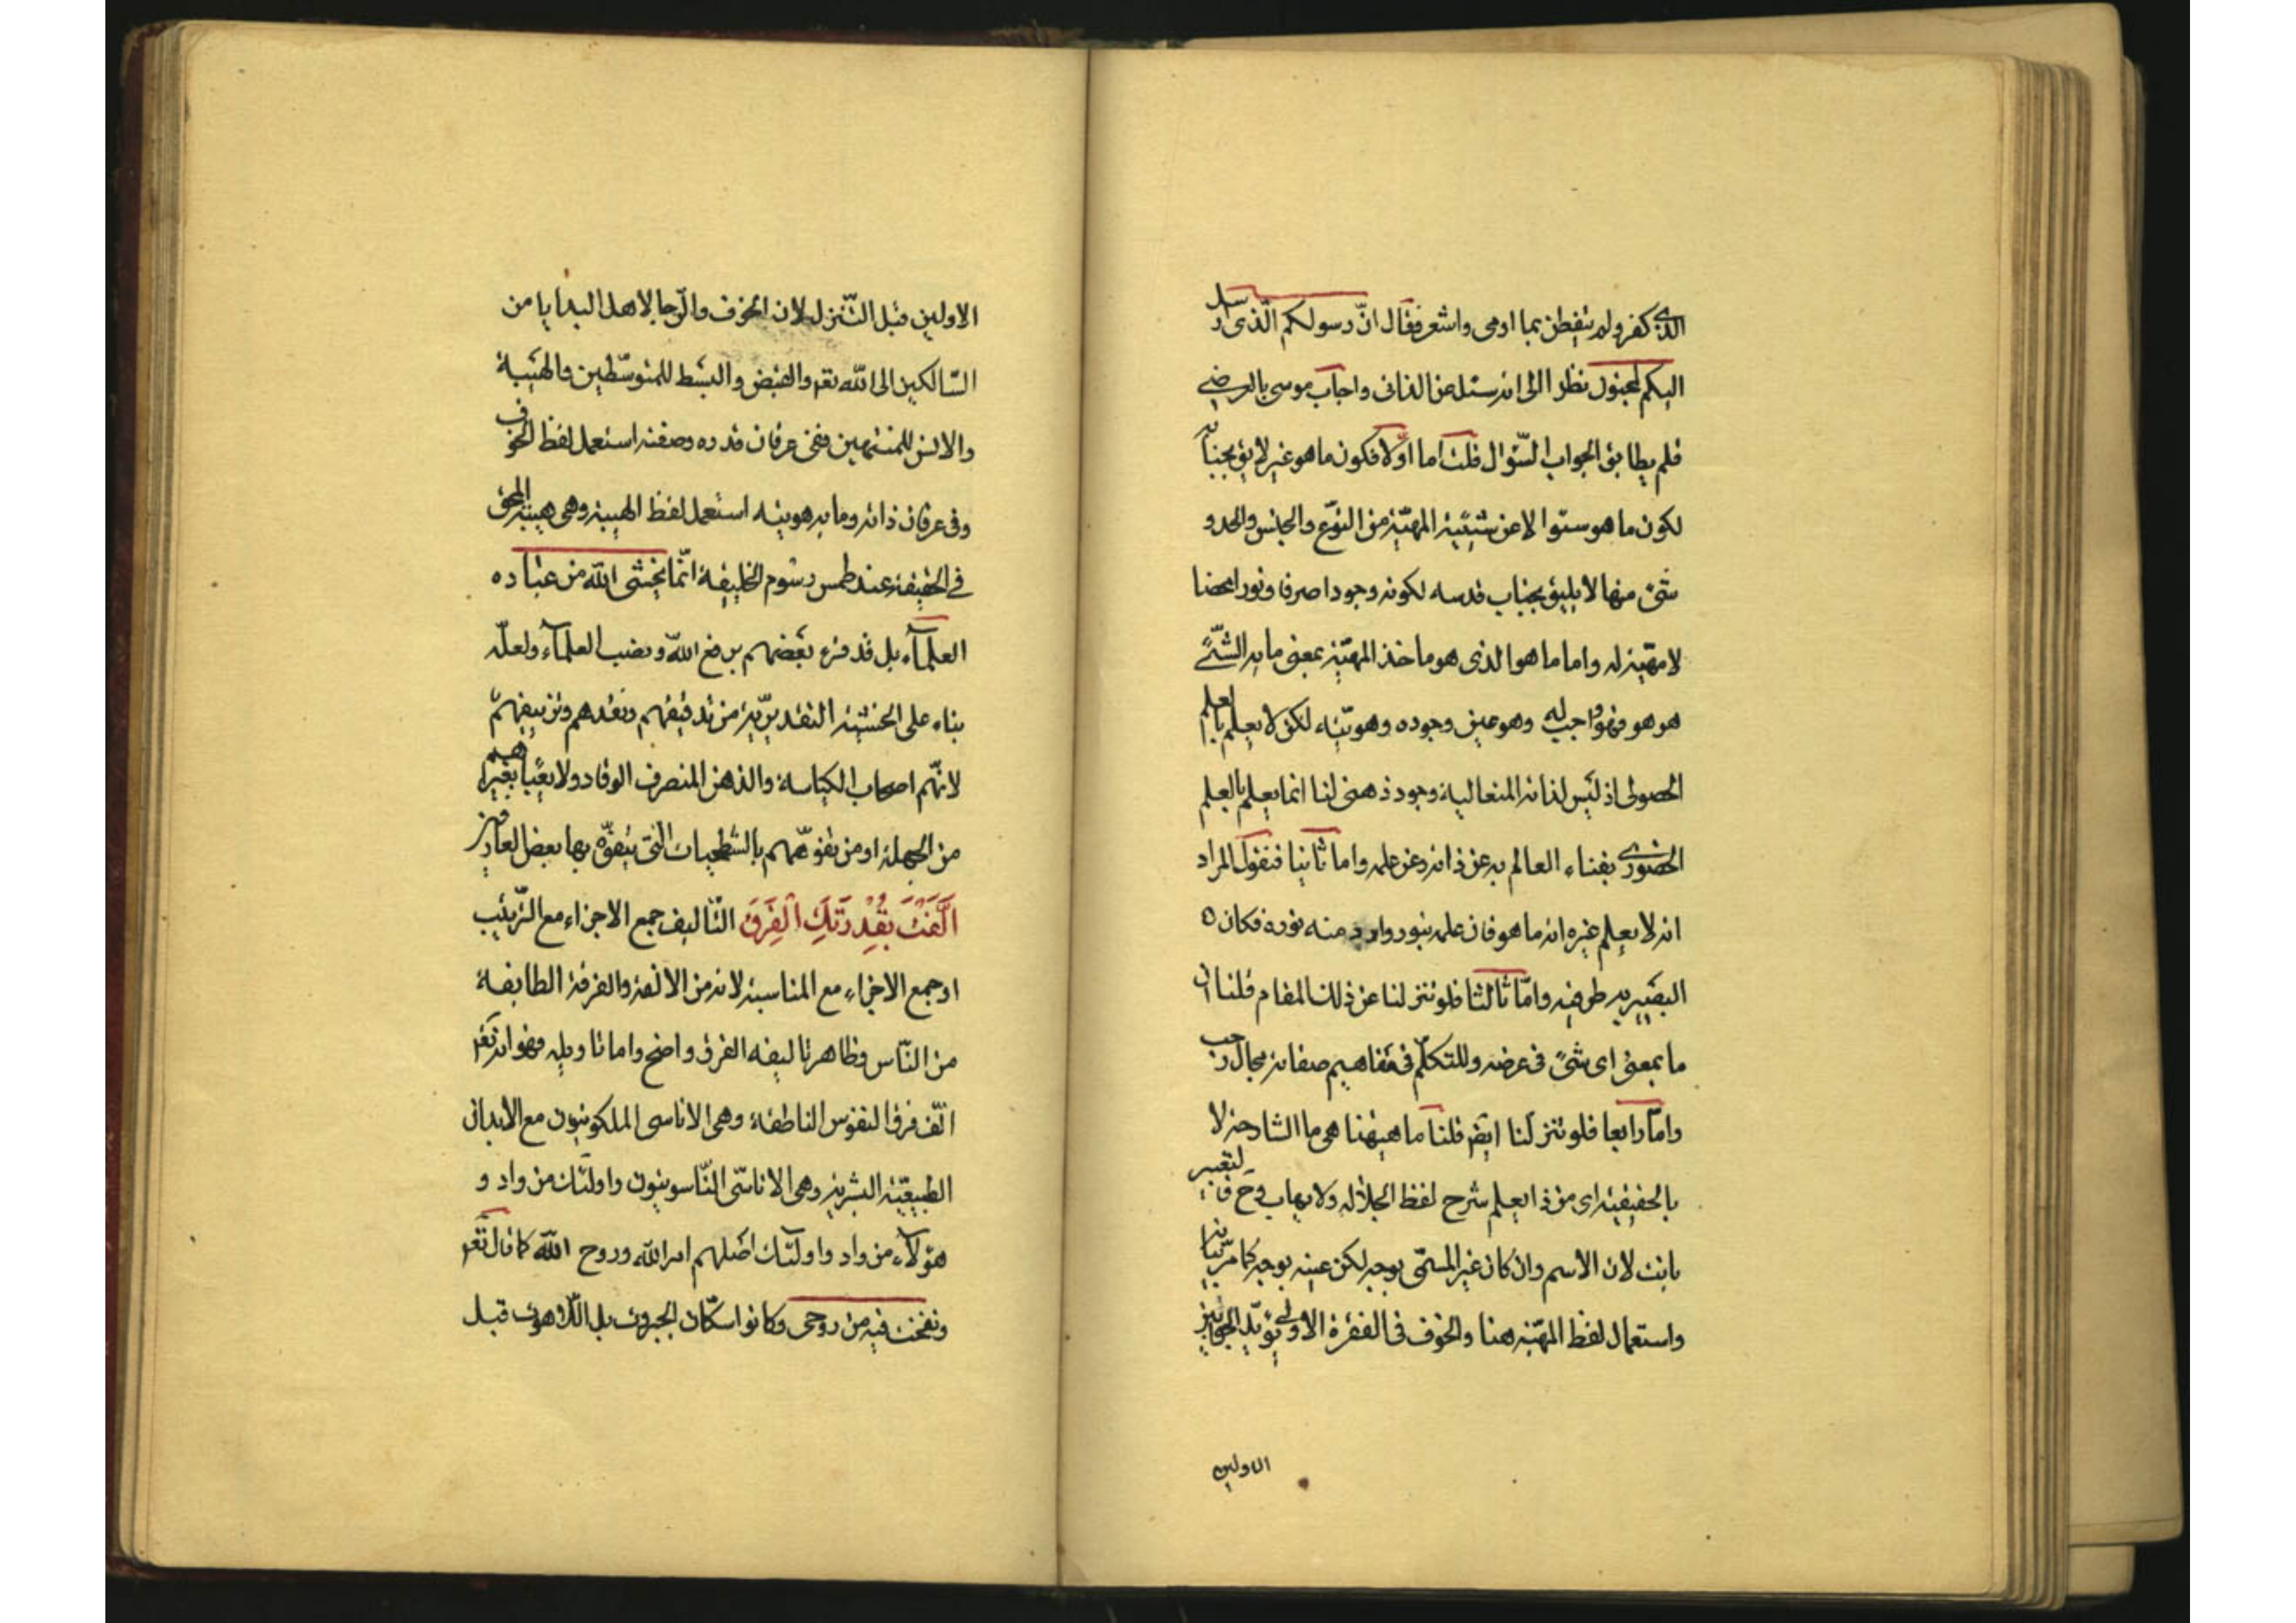 الذى كفر ولم يتفطن بما اومى واشعر فقال انّ رسولكم الّذى ارسل
اليكم لمجنون نظرا الى انه سئل عن الذاتى واجاب موسى بالعرضى
فلم يطابق الجواب السّؤال قلت اما اوّلا فكون ما هو غير لايق بجنابه
لكون ما هو سئوالا عن شيئية المهيّة من النوع والجنس والحدو
شئ منها لا يليق بجناب قدسه لكونه وجودا صرفا ونورا محضا
لا مهيّة له واما ما هو الذى هو ماخذ المهيّة بمعنى ما به الشّئ
هو هو فهو واجب له وهو عين وجوده وهويّته لكن لا يعلم بالعلم
الحصولى اذ ليس لذاته المتعالية وجود ذهنى لنا انما يعلم بالعلم
الحضورى بفناء العالم به عن ذاته وعن علمه واما ثانيا فنقول المراد
انه لا يعلم غيره انه ما هو فان علمه بنور وارد منه نوره فكان ه
البصير به طرفه واما ثالثا فلو تنزلنا عن ذلك المقام قلنا ان
ما بمعنى اى شئ فى عرضه وللتكلّم فى مفاهيم صفاته مجال رحب
وامّا رابعا فلو تنزلنا ايضا قلنا ما هيهنا هى ما الشارحة لا
بالحقيقية اى من ذا يعلم شرح لفظ الجلاله ولا يهاب وح فالتعبير
بانت لان الاسم وان كان غير المسمّى بوجه لكن عينه بوجه كما مرّ بيانه
واستعمال لفظ المهيّة هنا والخوف فى الفقرة الاولى يؤيّد الجوابين
الاولين
الاولين قبل التّنزل لان الخوف والرّجا لاهل البدايا من
السّالكين الى الله تعم والقبض والبسط للمتوسّطين والهيبة
والانس للمنتهين ففى عرفان قدره وصفته استعمل لفظ الخوف
وفى عرفان ذاته وما به هويته استعمل لفظ الهيبة وهى هيبة الحق
فى الحقيقة عند طمس رسوم الخليفة انّما يخشى الله من عباده
العلمآء بل قد قرء بعضهم برفع الله ونصب العلمآء ولعلّه
بناء على الخشية التقديريّة من تدقيقهم ونقدهم وتزييفهم
لانّهم اصحاب الكياسة والذهن المتصرف الوقاد ولا يعبأ بغيرهم
من الجهلة او من تفوههم بالشطحيات التى يتفوّه بها بعض العارفين
اَلَّفْتَ بِقُدْرَتِكَ الْفِرَقَ التّاليف جمع الاجزاء مع التّرتيب
او جمع الاجزاء مع المناسبة لانه من الالفة والفرقة الطايفة
من النّاس فظاهر تاليفه الفرق واضح واما تاويله فهو انه تعم
الّف فرق النفوس الناطقة وهى الاناسى الملكوتيون مع الابدان
الطبيعيّة البشرية وهى الاناسى النّاسوتيون واولئك من واد و
هؤلآء من واد واولئك اصلهم امر الله وروح الله كما قال تعم
ونفخت فيه من روحى وكانوا سكّان الجبروت بل اللّاهوت قبل